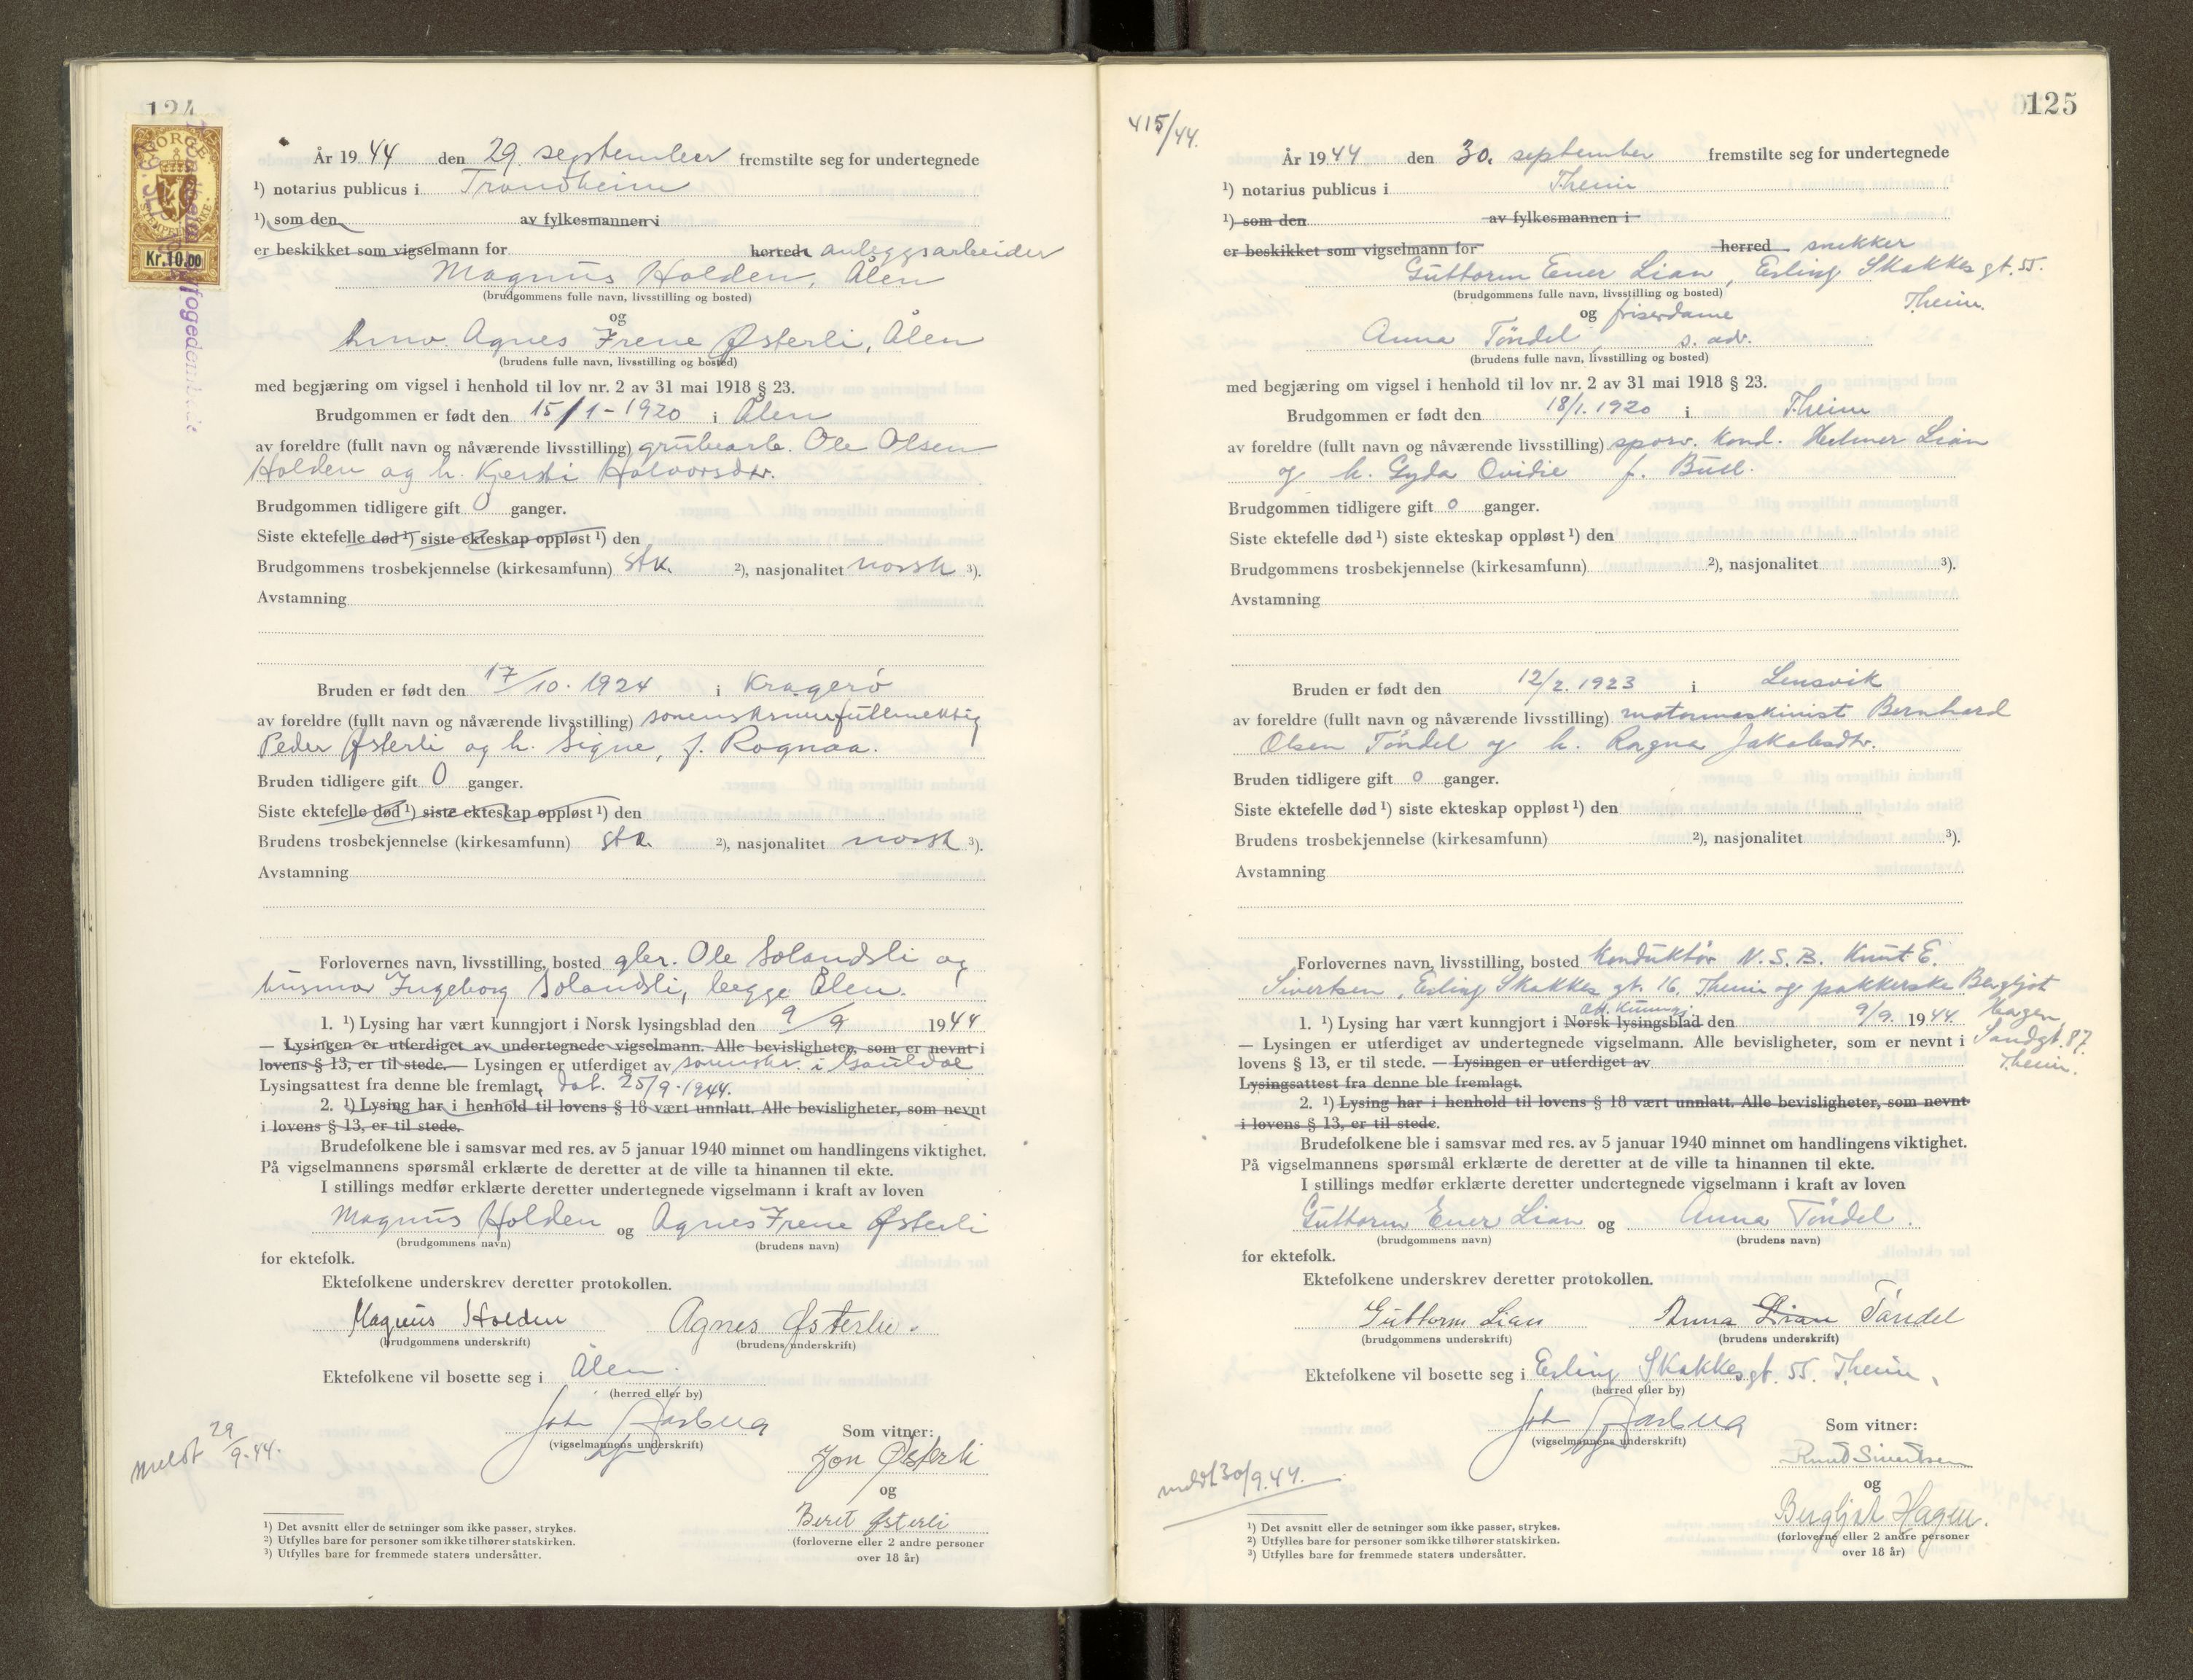 124
NORGE
STEMPELMERKE
Kr.10.00
År 1944 den 29. september fremstilte seg for undertegnede
¹) notarius publicus i Trondheim
¹) som den av fylkesmannen i
er beskikket som vigselmann for herred. anleggsarbeider
Magnus Holden, Ålen
(brudgommens fulle navn, livsstilling og bosted)
og
Agnes Irene Østerli, Ålen
(brudens fulle navn, livsstilling og bosted)
med begjæring om vigsel i henhold til lov nr. 2 av 31 mai 1918 § 23.
Brudgommen er født den 15/1-1920 i Ålen
av foreldre (fullt navn og nåværende livsstilling) grubearb. Ole Olsen
Holden og h. Kjersti Halvorsdtr.
Brudgommen tidligere gift 0 ganger.
Siste ektefelle død ¹) siste ekteskap oppløst ¹) den
Brudgommens trosbekjennelse (kirkesamfunn) stk. ²), nasjonalitet norsk ³).
Avstamning
Bruden er født den 17/10. 1924 i Kragerø
av foreldre (fullt navn og nåværende livsstilling) sorenskriverfullmektig
Peder Østerli og h. Signe, f. Rognaa.
Bruden tidligere gift 0 ganger.
Siste ektefelle død ¹) siste ekteskap oppløst ¹) den
Brudens trosbekjennelse (kirkesamfunn) stk. ²), nasjonalitet norsk ³).
Avstamning
Forlovernes navn, livsstilling, bosted gbr. Ole Solandsli og
husmor Ingeborg Solandsli, begge Ålen.
1. ¹) Lysing har vært kunngjort i Norsk lysingsblad den 9/9 1944
— Lysingen er utferdiget av undertegnede vigselmann. Alle bevisligheter, som er nevnt i
lovens § 13, er til stede. — Lysingen er utferdiget av sorenskr. i Gauldal
Lysingsattest fra denne ble fremlagt, dat. 25/9-1944.
2. ¹) Lysing har i henhold til lovens § 18 vært unnlatt. Alle bevisligheter, som nevnt
i lovens § 13, er til stede.
Brudefolkene ble i samsvar med res. av 5 januar 1940 minnet om handlingens viktighet.
På vigselmannens spørsmål erklærte de deretter at de ville ta hinannen til ekte.
I stillings medfør erklærte deretter undertegnede vigselmann i kraft av loven
Magnus Holden og Agnes Irene Østerli
(brudgommens navn) (brudens navn)
for ektefolk.
Ektefolkene underskrev deretter protokollen.
Magnus Holden Agnes Østerli.
(brudgommens underskrift) (brudens underskrift)
Ektefolkene vil bosette seg i Ålen.
(herred eller by)
(vigselmannens underskrift)
Som vitner:
Jon Østerli
og
Berit Østerli
(forloverne eller 2 andre personer
over 18 år)
meldt 29/9.44.
¹) Det avsnitt eller de setninger som ikke passer, strykes.
²) Utfylles bare for personer som ikke tilhører statskirken.
³) Utfylles bare for fremmede staters undersåtter.
125
415/44.
År 1944 den 30. september fremstilte seg for undertegnede
¹) notarius publicus i Theim
¹) som den av fylkesmannen i
er beskikket som vigselmann for herred. snekker
Guttorm Ener Lian, Erling Skakkes gt. 55.
(brudgommens fulle navn, livsstilling og bosted) Theim.
og friserdame
Anna Töndel, s. adr.
(brudens fulle navn, livsstilling og bosted)
med begjæring om vigsel i henhold til lov nr. 2 av 31 mai 1918 § 23.
Brudgommen er født den 18/1. 1920 i Theim
av foreldre (fullt navn og nåværende livsstilling) sporv. kond. Helmer Lian
og h. Gyda Ovidie f. Buil.
Brudgommen tidligere gift 0 ganger.
Siste ektefelle død ¹) siste ekteskap oppløst ¹) den
Brudgommens trosbekjennelse (kirkesamfunn) ²), nasjonalitet ³).
Avstamning
Bruden er født den 12/2. 1923 i Lensvik
av foreldre (fullt navn og nåværende livsstilling) motormaskinist Bernhard
Olsen Töndel og h. Ragna Jakobsdtr.
Bruden tidligere gift 0 ganger.
Siste ektefelle død ¹) siste ekteskap oppløst ¹) den
Brudens trosbekjennelse (kirkesamfunn) ²), nasjonalitet ³).
Avstamning
Forlovernes navn, livsstilling, bosted konduktör N.S.B. Knut E.
Sivertsen, Erling Skakkes gt. 16. Theim og pakkerske Bergljot
Hagen, Sandgt. 87. Theim.
1. ¹) Lysing har vært kunngjort i Norsk lysingsblad den 9/9. 1944.
— Lysingen er utferdiget av undertegnede vigselmann. Alle bevisligheter, som er nevnt i
lovens § 13, er til stede. — Lysingen er utferdiget av
Lysingsattest fra denne ble fremlagt.
2. ¹) Lysing har i henhold til lovens § 18 vært unnlatt. Alle bevisligheter, som nevnt
i lovens § 13, er til stede.
Brudefolkene ble i samsvar med res. av 5 januar 1940 minnet om handlingens viktighet.
På vigselmannens spørsmål erklærte de deretter at de ville ta hinannen til ekte.
I stillings medfør erklærte deretter undertegnede vigselmann i kraft av loven
Guttorm Ener Lian og Anna Töndel.
(brudgommens navn) (brudens navn)
for ektefolk.
Ektefolkene underskrev deretter protokollen.
Guttorm Lian Anna Lian Töndel
(brudgommens underskrift) (brudens underskrift)
Ektefolkene vil bosette seg i Erling Skakkes gt. 55. Theim.
(herred eller by)
(vigselmannens underskrift)
Som vitner:
Knut Sivertsen
og
Bergljot Hagen.
(forloverne eller 2 andre personer
over 18 år)
meldt 30/9.44.
¹) Det avsnitt eller de setninger som ikke passer, strykes.
²) Utfylles bare for personer som ikke tilhører statskirken.
³) Utfylles bare for fremmede staters undersåtter.